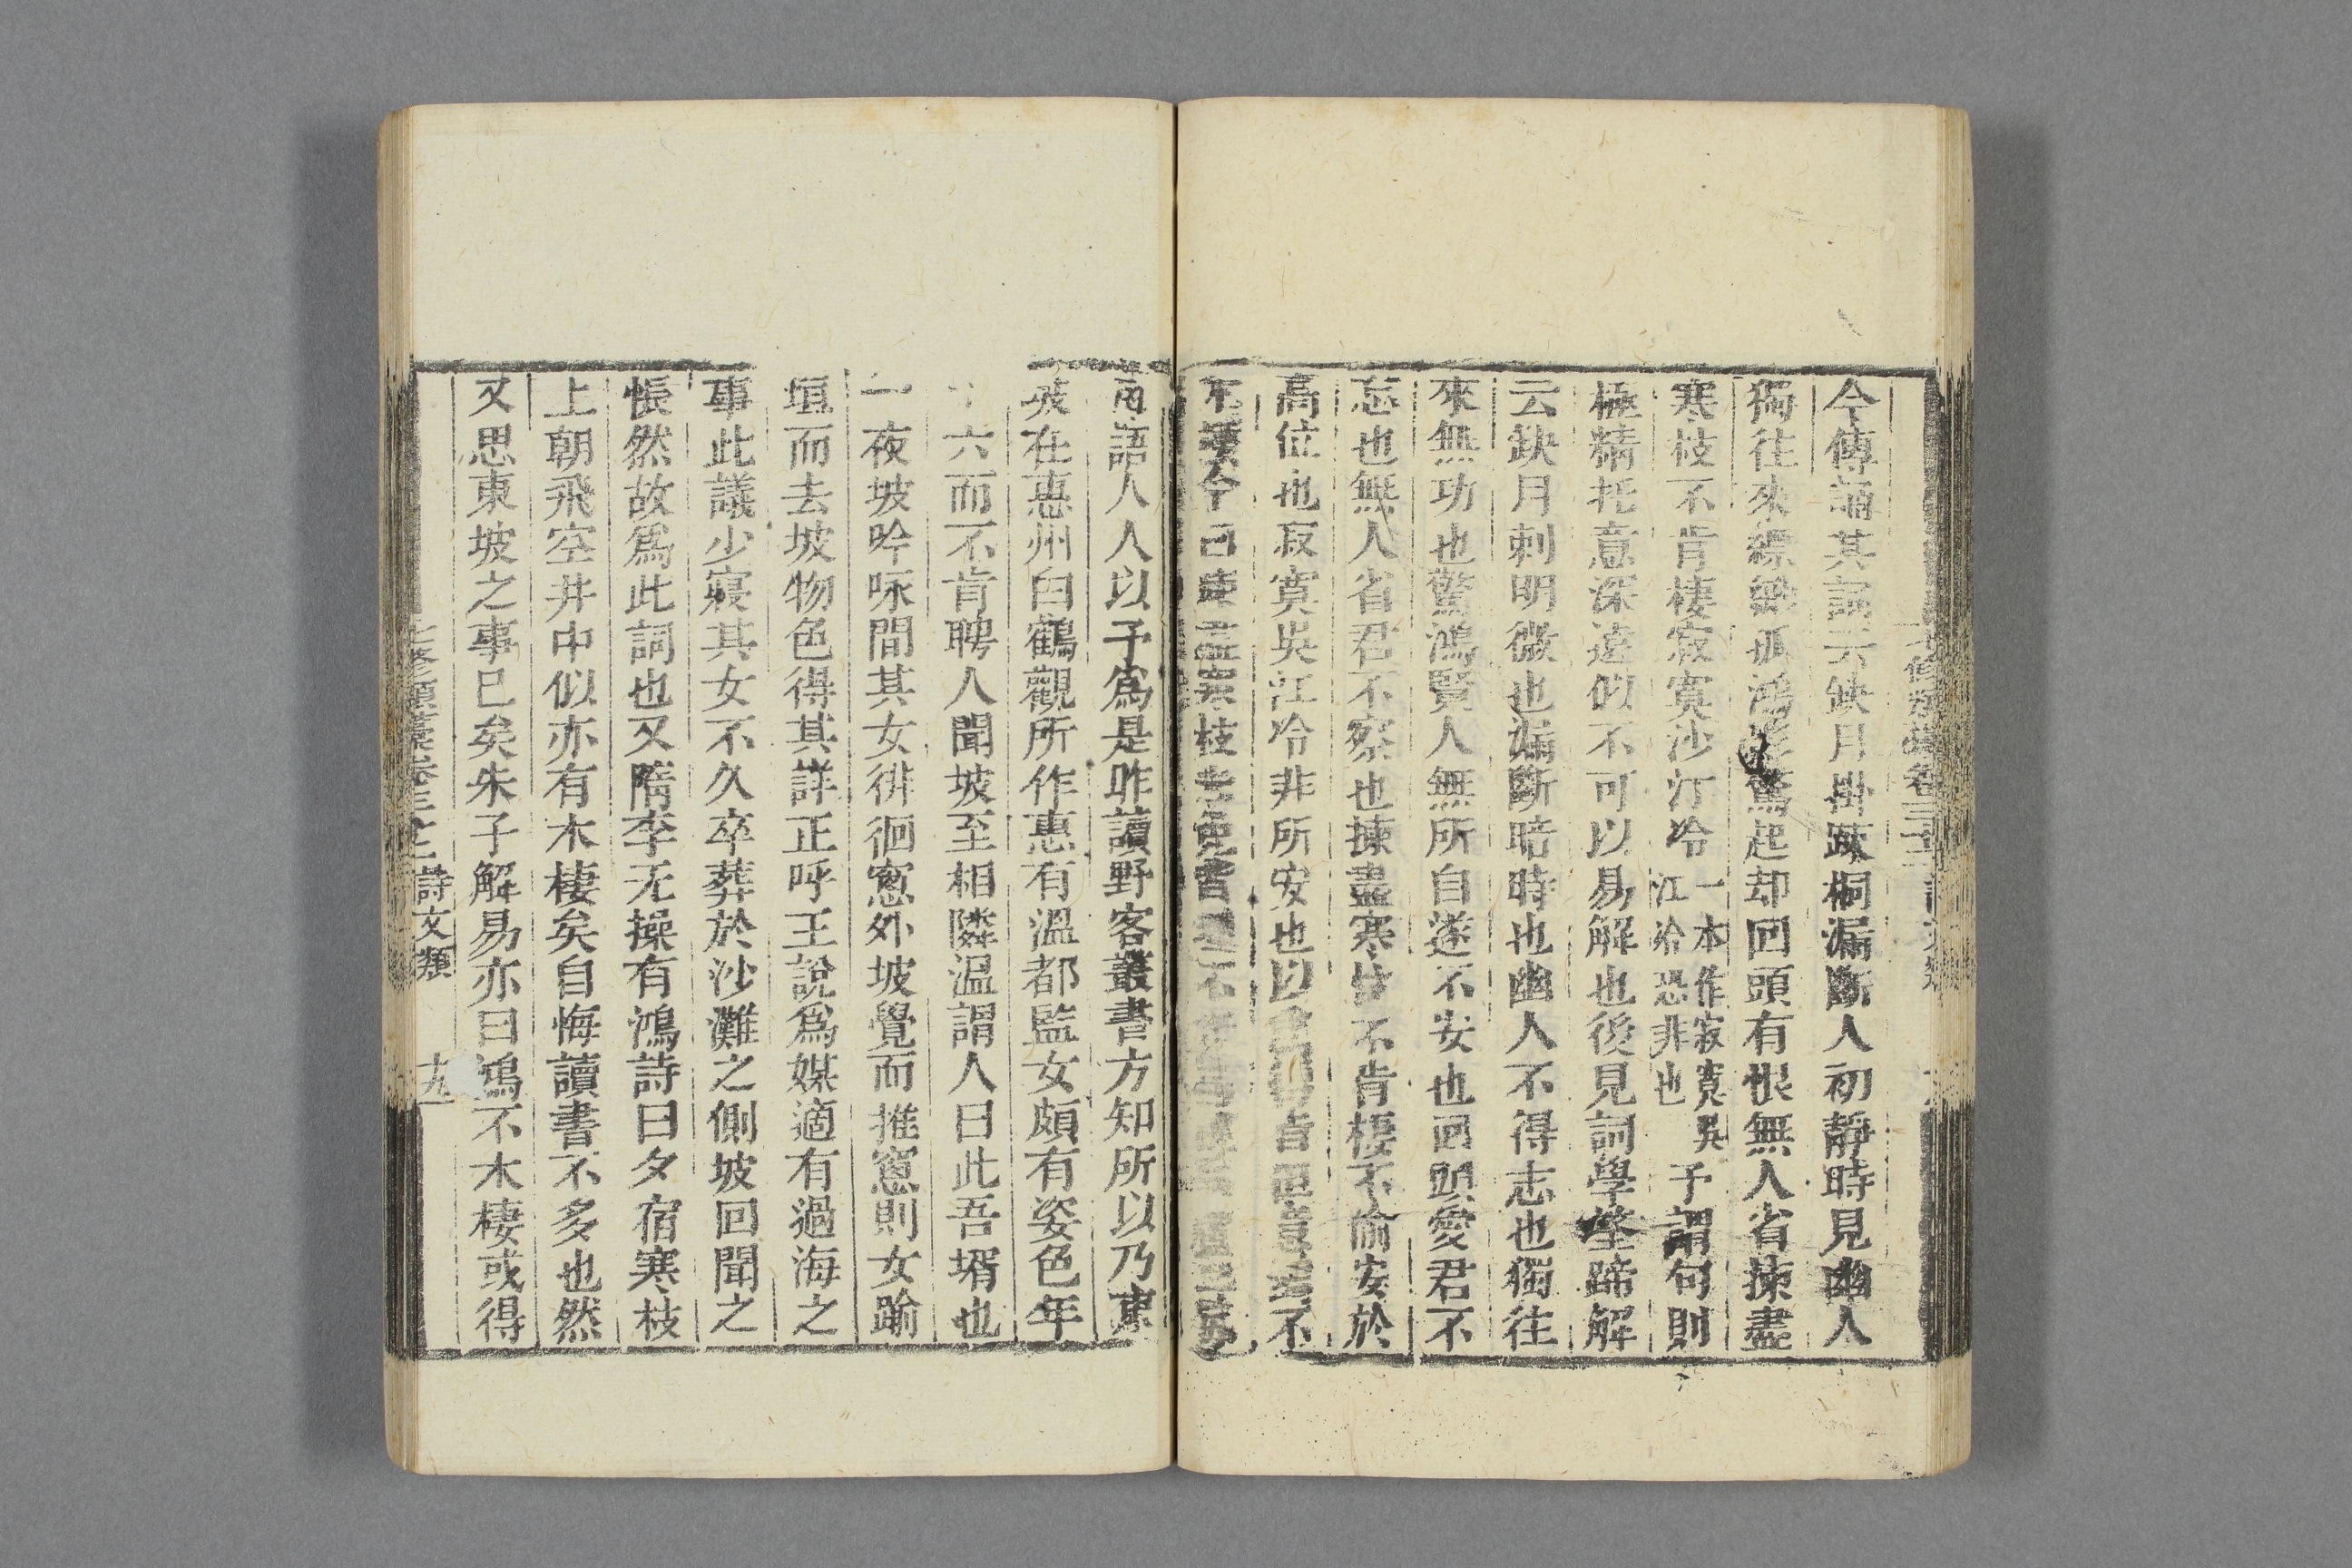 今傳誦其詞云缺月掛踈桐漏斷人初靜時見幽人
獨往來縹緲孤鴻影驚起却回頭有恨無人省揀盡
寒枝不肯棲寂寞沙汀冷一本作寂寞吳江冷恐非也予謂句則
極精托意深遠似不可以易解也後見詞學筌蹄解
云缺月刺明微也漏斷暗時也幽人不得志也獨往
來無功也驚鴻賢人無所自遂不安也回頭愛君不
忘也無人省君不察也揀盡寒枝不肯棲不偷安於
高位也寂寞吳江冷非所安也以
不
寒枝
語人人以予爲是昨讀野客叢書方知所以乃東
坡在惠州白鶴觀所作惠有溫都監女頗有姿色年
六而不肯聘人聞坡至相隣溫謂人曰此吾壻也
一夜坡吟咏間其女徘徊窻外坡覺而推窻則女踰
垣而去坡物色得其詳正呼王說爲媒適有過海之
事此議少寢其女不久卒葬於沙灘之側坡回聞之
悵然故爲此詞也又隋李元操有鴻詩曰夕宿寒枝
上朝飛空井中似亦有木棲矣自悔讀書不多也然
又思東坡之事已矣朱子解易亦曰鴻不木棲或得
七修類藁卷三之 詩文類 十九